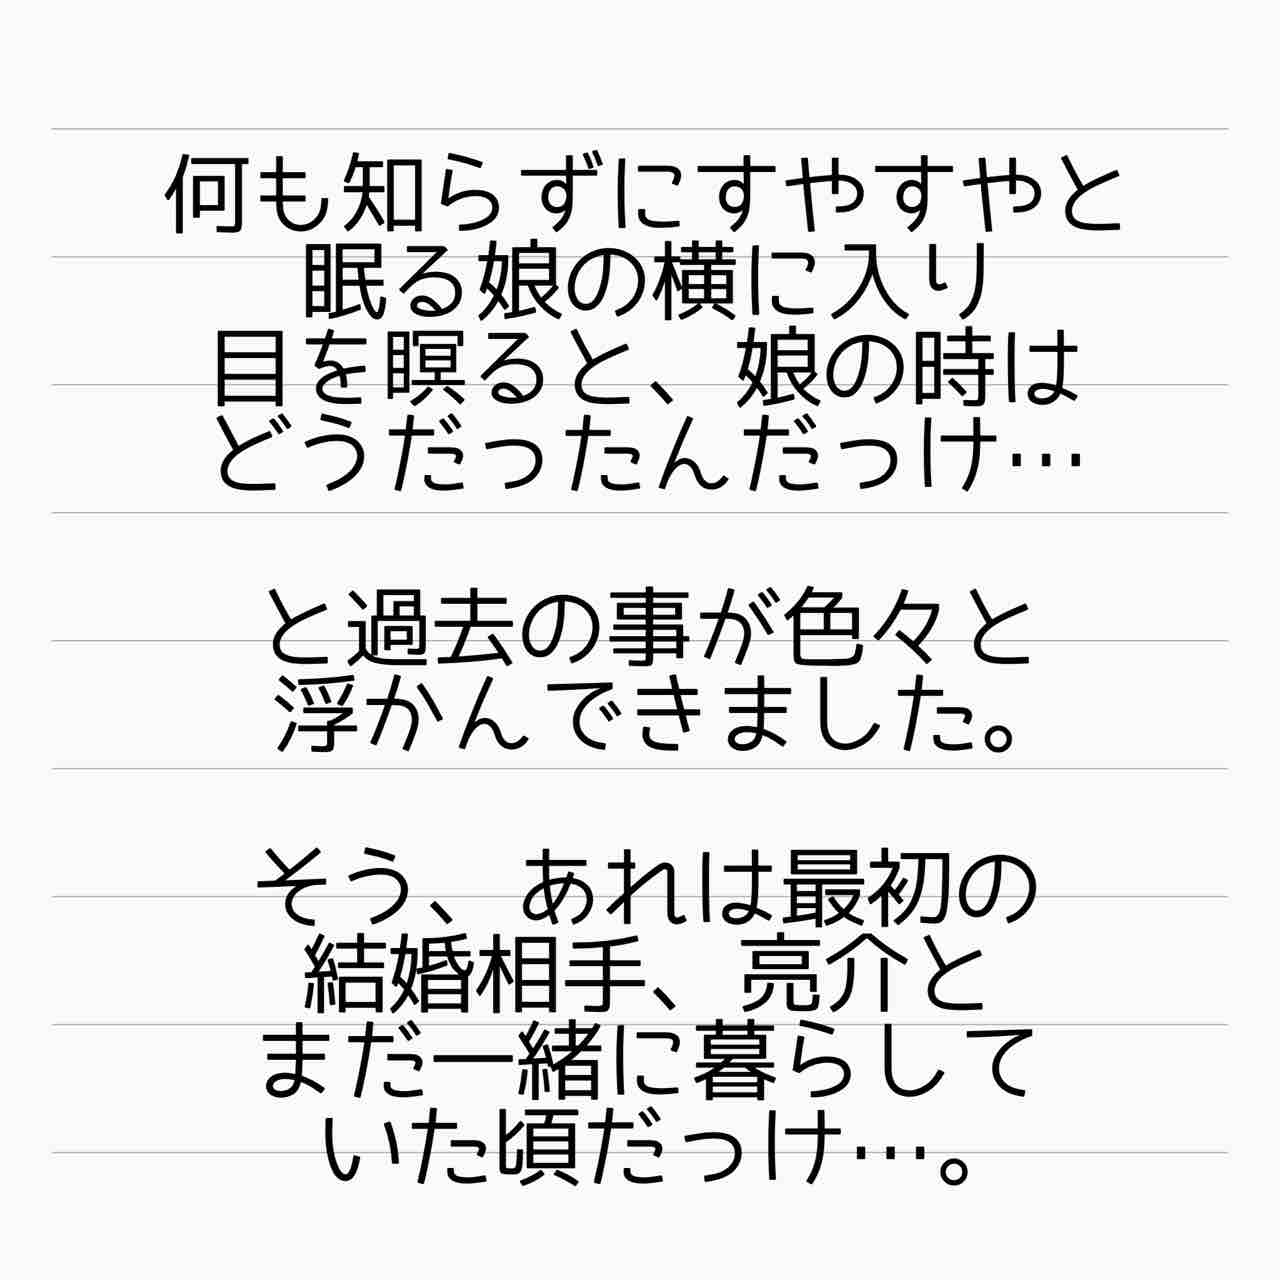 何も知らずにすやすやと
眠る娘の横に入り
目を瞑ると、娘の時は
どうだったんだっけ…
と過去の事が色々と
浮かんできました。
そう、あれは最初の
結婚相手、亮介と
まだ一緒に暮らして
いた頃だっけ…。